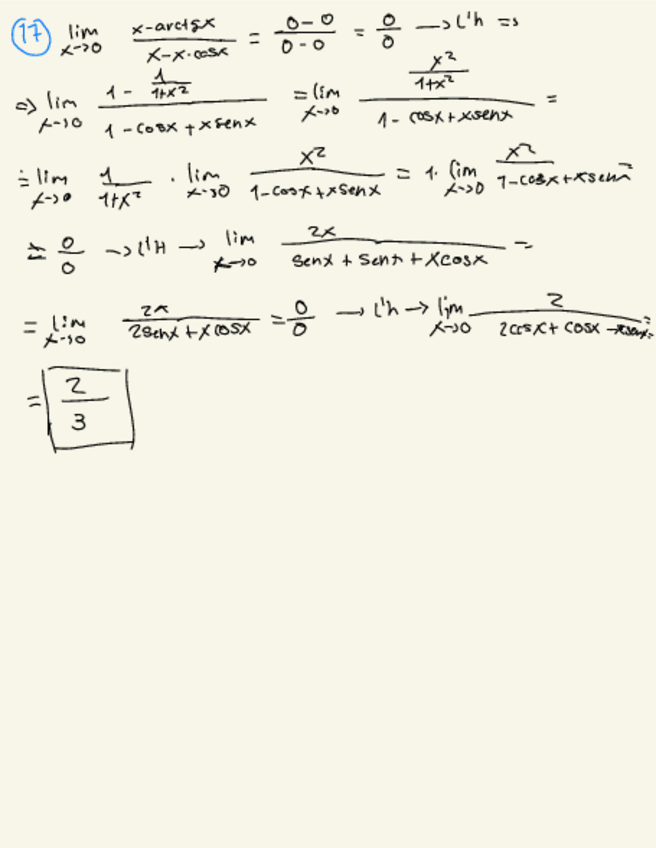 17 lim x→0 (x-arctgx)/(x-x·cosx) = (0-0)/(0-0) = 0/0 → L'h ⇒
⇒ lim x→0 (1 - 1/(1+x²))/(1-cosx+xsenx) = lim x→0 (x²/(1+x²))/(1-cosx+xsenx) =
= lim x→0 1/(1+x²) · lim x→0 x²/(1-cosx+xsenx) = 1· lim x→0 x²/(1-cosx+xsenx) =
= 0/0 → L'H → lim x→0 2x/(senx+senx+xcosx) =
= lim x→0 2x/(2senx+xcosx) = 0/0 → L'h → lim x→0 2/(2cosx+cosx-xsenx) =
= 2/3